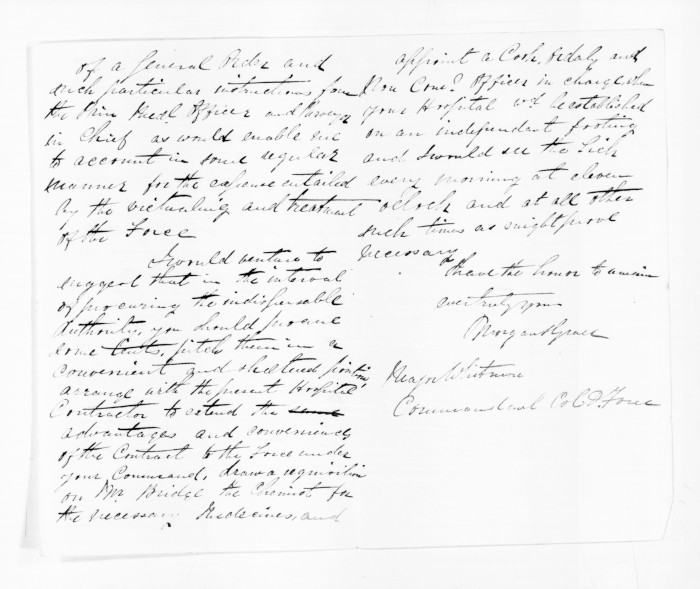 of a General Order and
such particular instructions from
the Prin Medl Officer and
in Chief as would enable me
to account in some regular
manner for the expense entailed
by the victualing and treatment
of the Force
I would venture to
suggest that in the interval
of procuring the indispensable
Authority, you should procure
some tents, pitch them in a
convenient and sheltered position,
arrange with the present Hospital
Contractor to extend the same
advantages and conveniences
of the Contract to the Force under
your Command, draw a requisition
on Mr Bridge the Chemist for
the necessary Medicines, and
appoint a Cook, Orderly and
Non Comd Officer in charge when
your Hospital wd be established
on an independent footing
and I would see the Sick
every morning at eleven
o'clock and at all other
such times as might prove
necessary
I have the honor to remain
ever truly yours
Morgan Grace
Major Whitmore
Commandant Col. D. Force